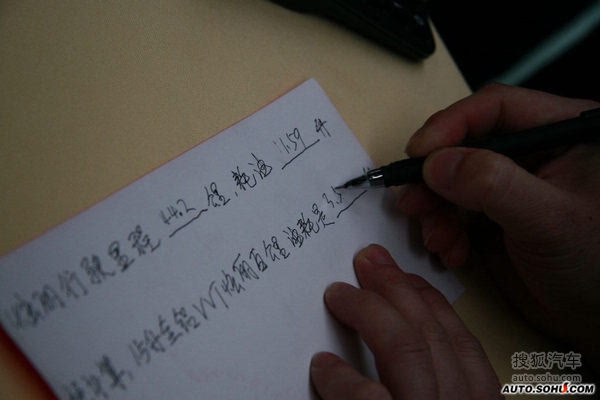 炫丽行驶里程 442 公里,耗油 11.59 升
经计算,1.5升全铝VVT炫丽百公里油耗是3.5
搜狐汽车
auto.sohu.com
AUTO.SOHU.COM